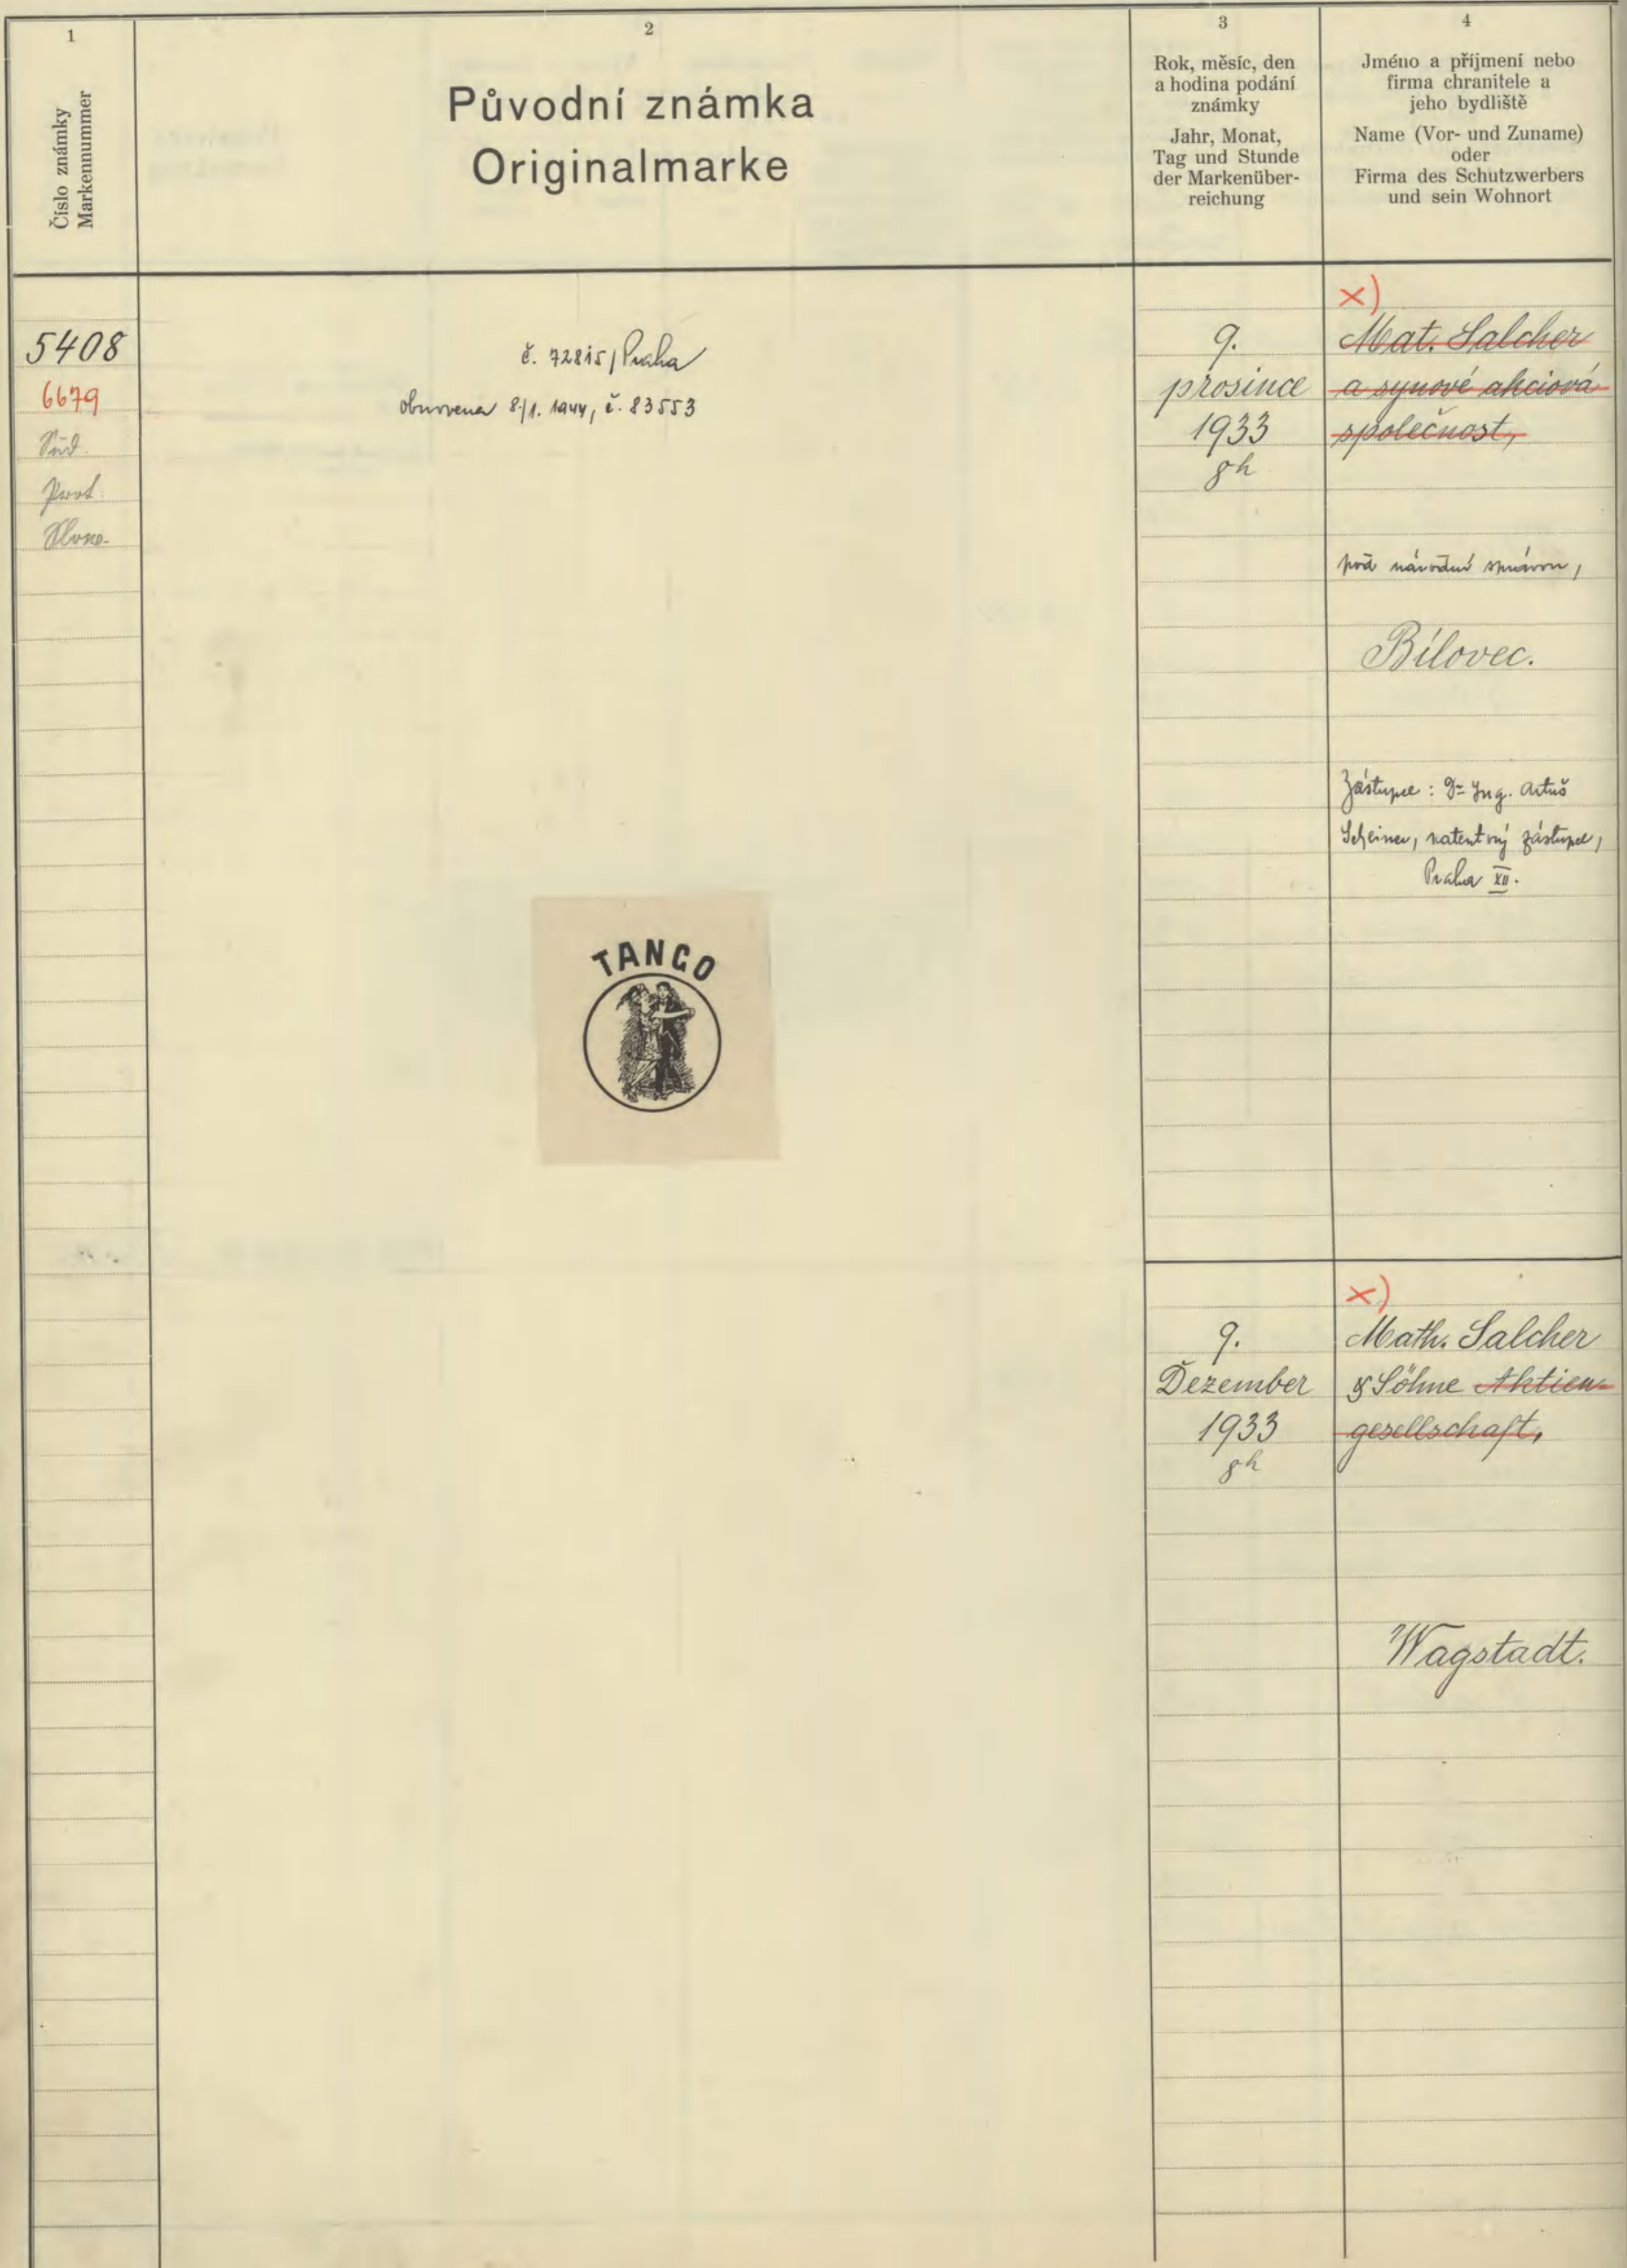 1
Číslo známky
Markennummer
2
Původní známka
Originalmarke
3
Rok, měsíc, den
a hodina podání
známky
Jahr, Monat,
Tag und Stunde
der Markenüber-
reichung
4
Jméno a příjmení nebo
firma chranitele a
jeho bydliště
Name (Vor- und Zuname)
oder
Firma des Schutzwerbers
und sein Wohnort
5408
6679
Süd.
Prot.
Slow.
č. 72815/Praha
obnovena 8./1. 1944, č. 83553
TANGO
9.
prosince
1933
8h
x)
Mat. Salcher
a synové akciová
společnost,
pod národní správou,
Bílovec.
Zástupce: Dr Ing. Artuš
Scheiner, patentový zástupce,
Praha XII.
9.
Dezember
1933
8h
x)
Math. Salcher
& Söhne Aktien-
gesellschaft,
Wagstadt.